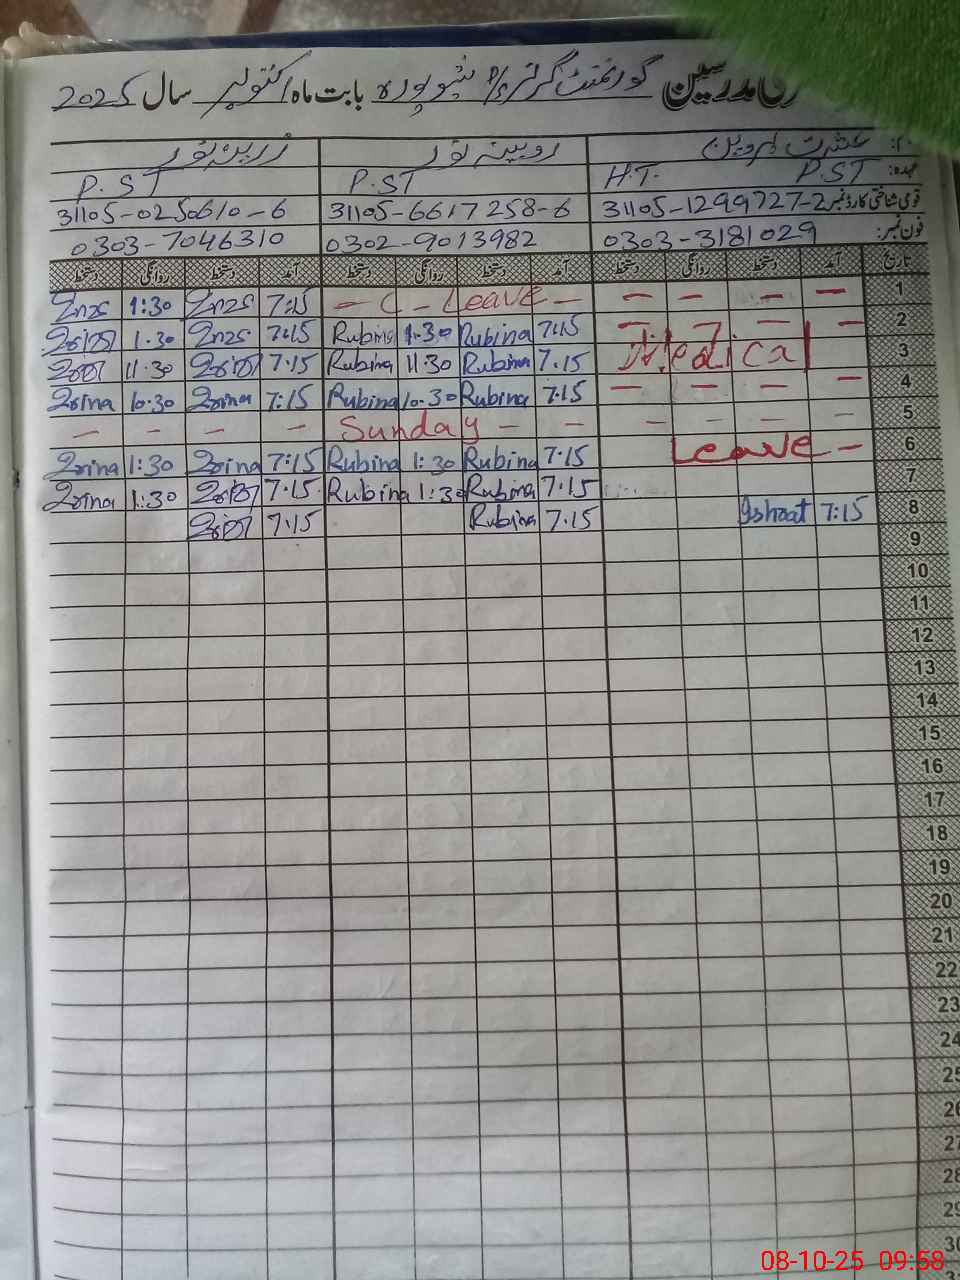 مدرسین گورنمنٹ گرلز p/s شیو پورہ بابت ماہ اکتوبر سال 2025
عشرت پروین روبینہ نور زرینہ نور
عہدہ: P.ST H.T. P.ST P.ST
قومی شناختی کارڈ نمبر 31105-1299727-2 31105-6617258-6 31105-0250610-6
فون نمبر: 0303-3181029 0302-9013982 0303-7046310
تاریخ آمد دستخط روانگی دستخط آمد دستخط روانگی دستخط آمد دستخط روانگی دستخط
1:30 7:15 - C - Leave - - - - - 1
1.30 7:15 Rubina 1.30 Rubina 7:15 - - - - 2
11.30 7.15 Rubina 11.30 Rubina 7.15 Medical 3
Zrina 10.30 Zrina 7:15 Rubina 10.30 Rubina 7.15 - - - - 4
- - - - Sunday - - - - - - 5
Zrina 1:30 Zrina 7:15 Rubina 1:30 Rubina 7:15 Leave - 6
Zrina 1:30 7.15 Rubina 1:30 Rubina 7:15 7
7.15 Rubina 7.15 Ishrat 7:15 8
9
10
11
12
13
14
15
16
17
18
19
20
21
22
23
24
25
26
27
28
29
30
08-10-25 09:58